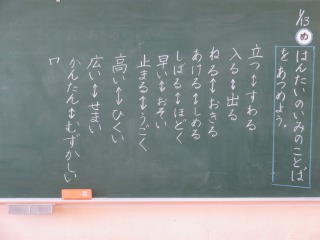 1/13
め
はんたいのいみのことば
をあつめよう。
立つ↕すわる
入る↕出る
ねる↕おきる
あける↕しめる
しばる↕ほどく
早い↕おそい
止まる↕うごく
高い↕ひくい
広い↕せまい
かんたん↕むずかしい